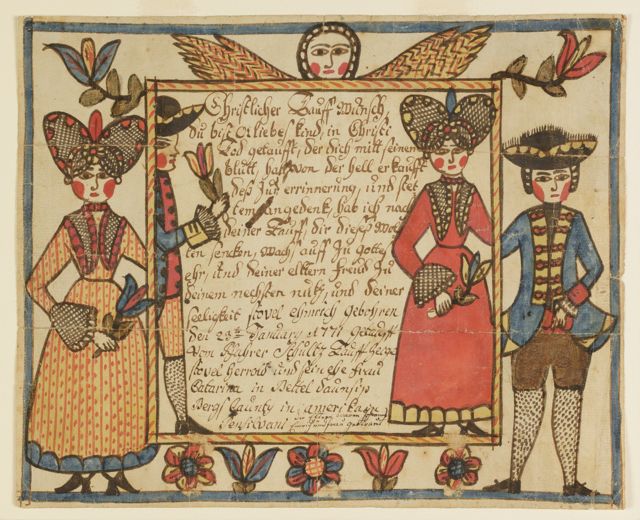 Christlicher Tauff Wunsch
du bist O liebes kind, in Christi
Tod getaufft, der dich mitt seinem
blutt, hatt von der hell er kaufft
deß Zur errinnerung, und stet
tem angedenk, hab ich nach
deiner Tauff dir dießes Wol
ten sencken, wachs auff Zu Gottes
ehr, und deiner eltern freud Zu
deinem nechsten nutz, und deiner
seeligkeit stovel ehnrich gebohren
den January 1771 getaufft
vom Pfahrer Schultz Tauff
stovel und sein ehe frau
Catarina in Bettel Taunsip
Bergs Caunty in amerika
Pensilvani